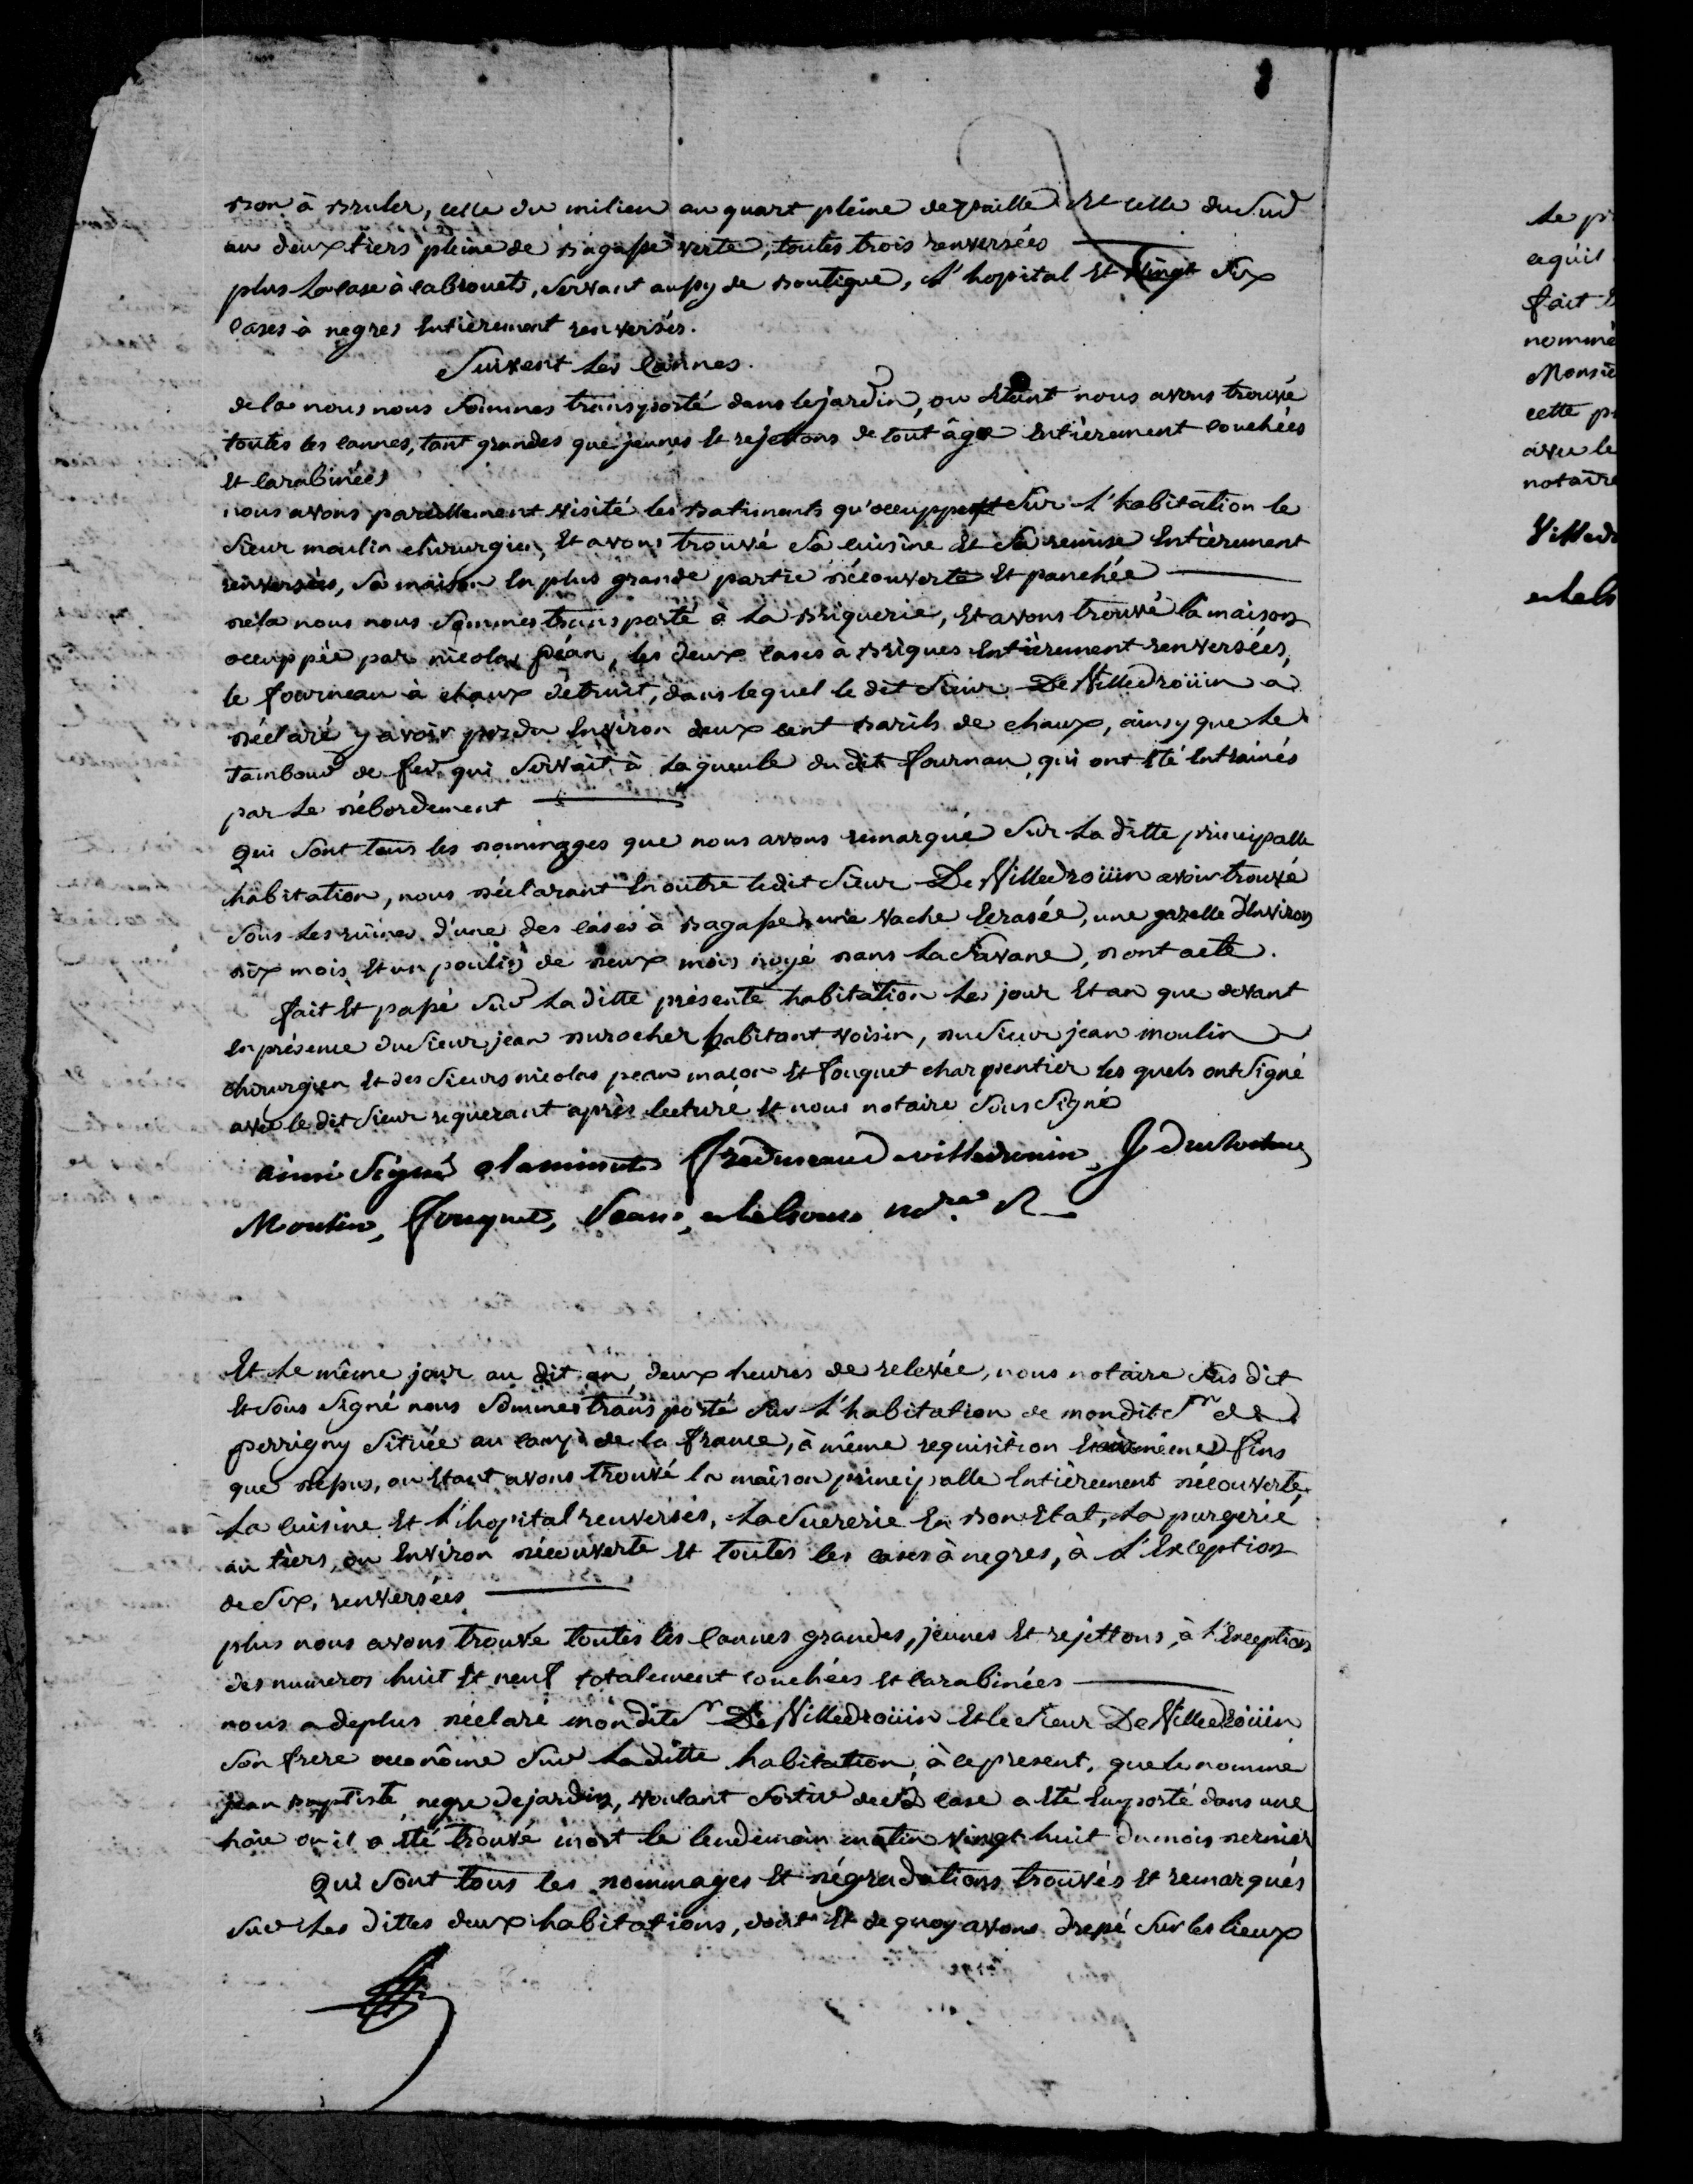 bon à bruler, celle du milieu au quart pleine de paille et celle du sud
au deux tiers pleine de bagasse verte, toutes trois renversées
plus la case à cabrouets, servant aussy de boutique, l'hopital et vingt six
cases à negres entièrement renversés.
Suivent les cannes.
de la nous nous sommes transporté dans le jardin, ou étant nous avons trouvé
toutes les cannes, tant grandes que jeunes et rejettons de tout âge entièrement couchées
et carabinées
nous avons pareillement visité les batiments qu'occuppent sur l'habitation le
sieur moulin chirurgien, et avons trouvé sa cuisine et sa remise entièrement
renversées, sa maison en plus grande partie découverte et panchée
dela nous nous sommes transporté à la briquerie, et avons trouvé la maison
occuppée par nicolas péan, les deux cases à briques entièrement renversées,
le fourneau à chaux détruit, dans lequel le dit sieur De Villedroüin a
déclaré y avoir perdu environ deux cent barils de chaux, ainsy que le
tambour de fer qui servait à la gueule du dit fournau, qui ont été entrainés
par le débordement
Qui sont tous les dommages que nous avons remarqué sur la ditte principalle
habitation, nous déclarant en outre ledit sieur De Villedroüin avoir trouvé
sous les ruines d'une des cases à bagasse, une vache écrasée, une gazelle d'environ
dix mois et un poulin de deux mois noyé dans la savane, dont acte.
fait et passé sur la ditte présente habitation les jour et an que devant
en présence du sieur jean durocher habitant voisin, du sieur jean moulin
chirurgien et des sieurs nicolas pean maçon et fouquet charpentier les quels ont signé
avec le dit sieur requerant après lecture et nous notaire sous signé
ainsi signé a la minute villedrouin, J durocher
Moulin, fouquet, Pean,
Et le même jour au dit an, deux heures de relevée, nous notaire sus dit
et sous signé nous sommes transporté sur l'habitation de mondit Sr de
perrigny située au camp de la france, à même requisition et mêmes fins
que dessus, ou étant avons trouvé la maison principalle entièrement découverte,
la cuisine et l'hopital renversés, la sucrerie en bon état, la purgerie
au tiers, ou environ découverte et toutes les cases à negres, à l'exception
de six, renversées
plus nous avons trouvé toutes les cannes grandes, jeunes et rejettons, à l'exception
des numeros huit et neuf totalement couchées et carabinées
nous a deplus déclaré mondit Sr De Villedroüin et le sieur De Villedroüin
son frere œconôme sur la ditte habitation, à ce present, que le nommé
jean baptiste, negre de jardin, voulant sortir de sa case a été emporté dans une
haie ou il a été trouvé mort le lendemain matin vingt huit du mois dernier
Qui sont tous les dommages et dégradations trouvés et remarqués
sur les dittes deux habitations, dont et de quoy avons dressé sur les lieux
le p
aquil
fait
nommé
Monsie
cette p
avec le
notaire
Villed